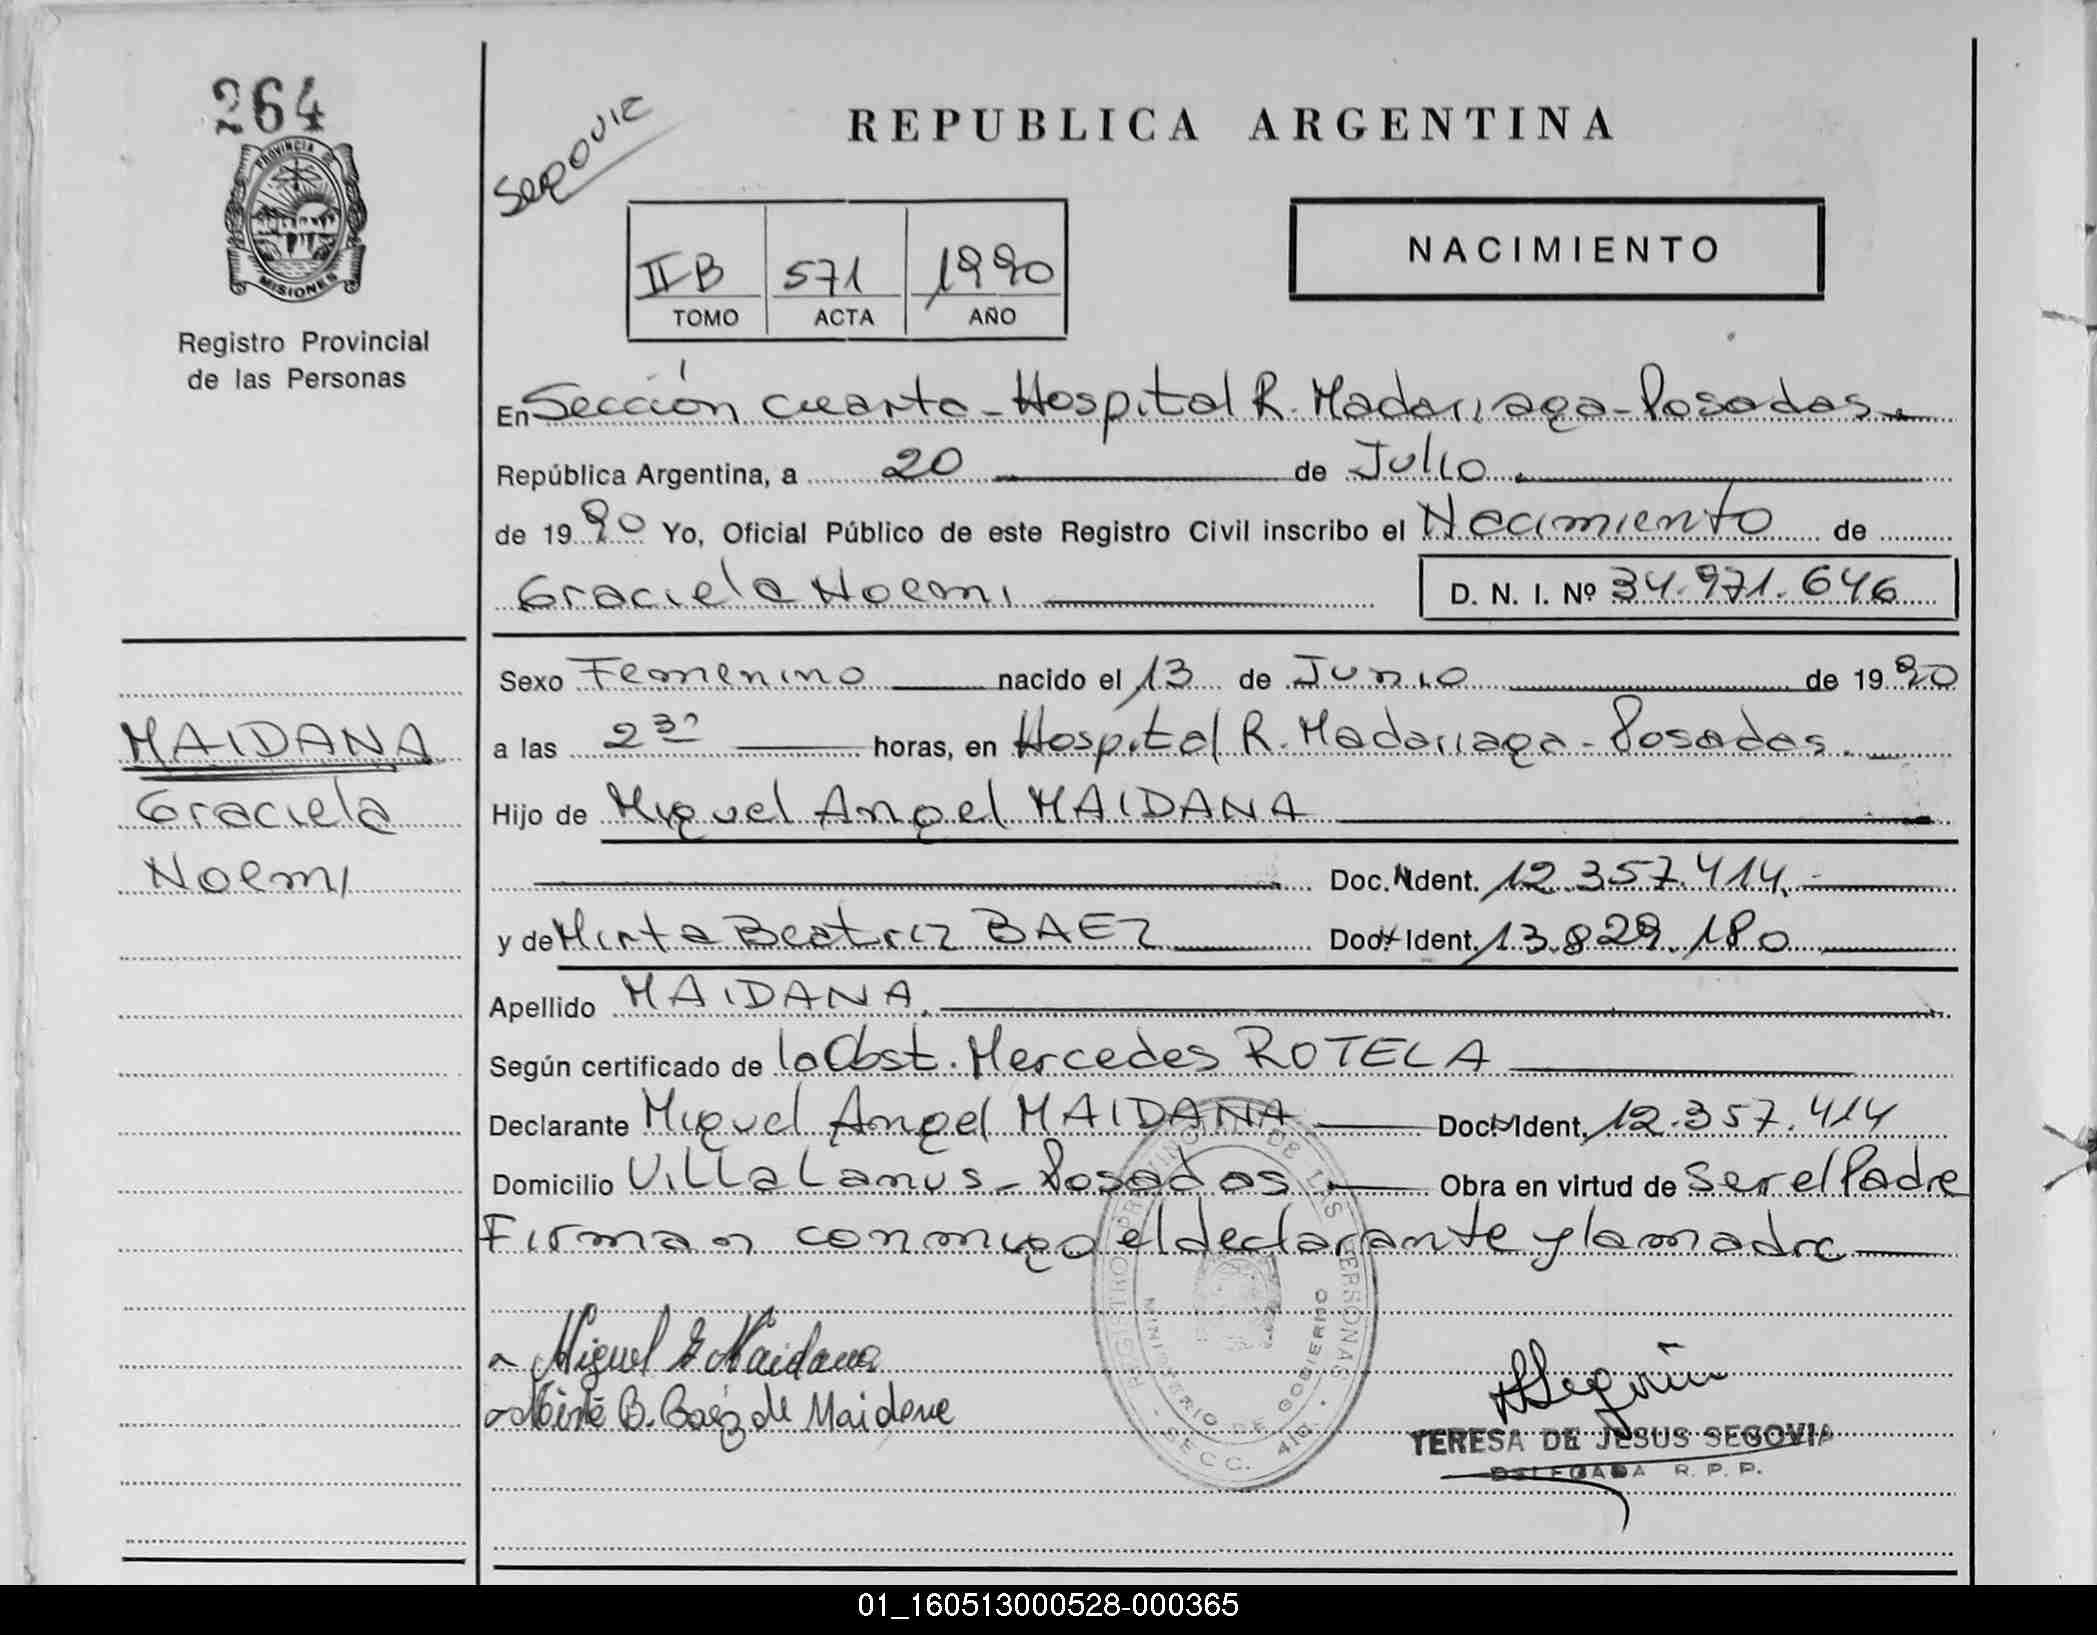 264
PROVINCIA DE
MISIONES
Registro Provincial
de las Personas
REPUBLICA ARGENTINA
NACIMIENTO
IIB 571 1990
TOMO ACTA AÑO
En Sección cuarta - Hospital R. Madariaga - Posadas.
República Argentina, a 20 de Julio
de 1990 Yo, Oficial Público de este Registro Civil inscribo el Nacimiento de
Graciela Noemi D. N. I. Nº 34.971.646
Sexo Femenino nacido el 13 de Junio de 1990
a las 2 30 horas, en Hospital R. Madariaga - Posadas.
Hijo de Miguel Angel MAIDANA
Doc. Ident. 12.357.414.-
y de Mirta Beatriz BAEZ Doc. Ident. 13.829.180
Apellido MAIDANA.
Según certificado de la Obst. Mercedes ROTELA
Declarante Miguel Angel MAIDANA Doc. Ident. 12.357.414
Domicilio Villa Lanus - Posadas. Obra en virtud de ser el Padre
Firman conmigo el declarante y la madre
MAIDANA
Graciela
Noemi
Miguel A Maidana
Mirta B. Baez de Maidana
REGISTRO PROVINCIAL DE LAS PERSONAS
MINISTERIO DE GOBIERNO
SECC. 4ta.
TERESA DE JESUS SEGOVIA
DELEGADA R. P. P.
01_160513000528-000365